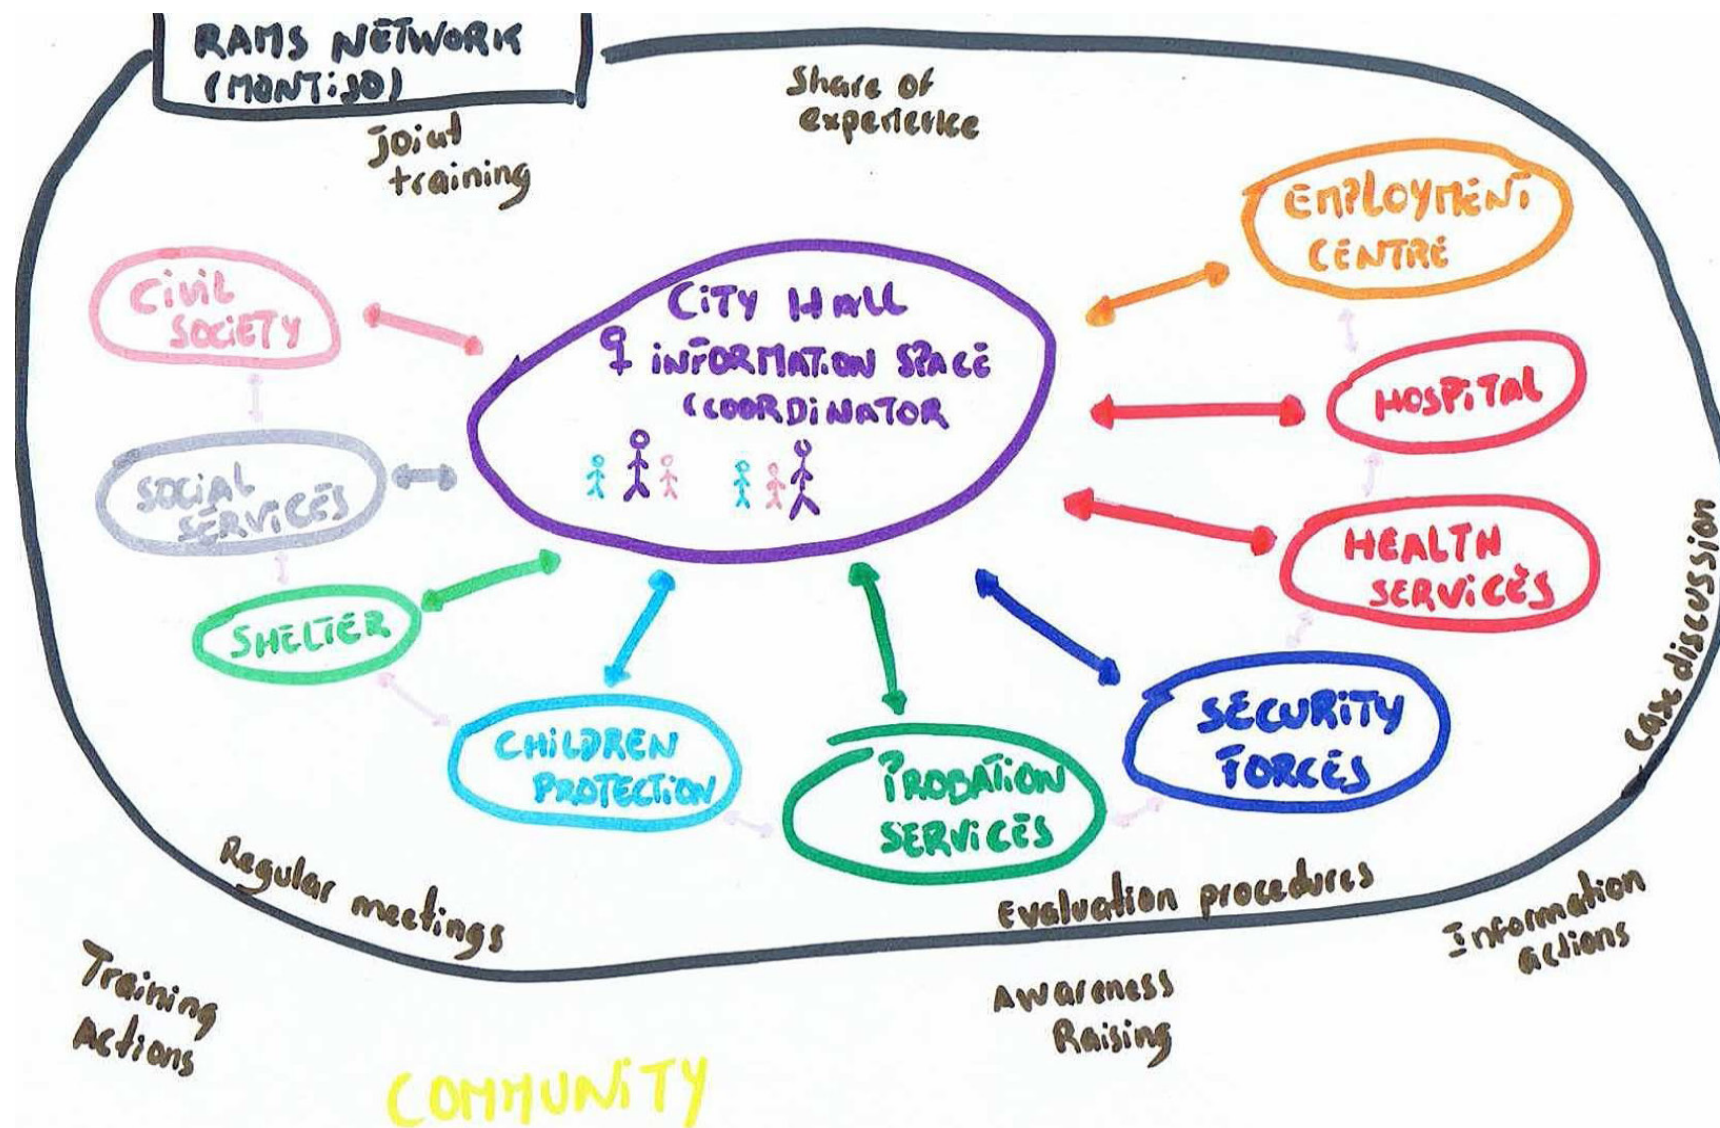 RAMS NETWORK
(MONTiJO)
joint
training
Share of
experience
EMPLOYMENT
CENTRE
CiViL
SOCiETY
CiTY HALL
♀ INFORMATiON SPACE
(COORDiNATOR
HOSPiTAL
SOCiAL
SERViCES
HEALTH
SERViCES
SHELTER
SECURiTY
FORCES
CHiLDREN
PROTECTiON
PROBATiON
SERViCES
Case discussion
Regular meetings
Evaluation procedures
Information
actions
Training
Actions
Awareness
Raising
COMMUNiTY